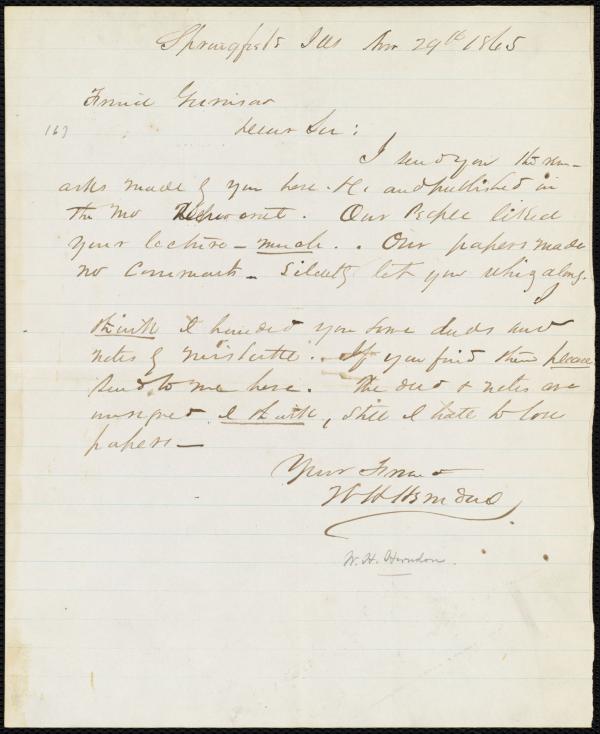 Springfield Ills Nov 29th 1865
Friend Garrison
163
Dear Sir:
I send you the rem-
arks made of you here. & published in
the Mo Democrat. Our People liked
your lecture – much. . Our papers made
no Comments – Silently let you whig along.
I
think I handed you some deeds and
notes by mistake. . If you find them please
send to me here. The deed & notes are
unsigned I think, still I hate to lose
papers –
Your Friend
W H Herndon
W. H. Herndon.